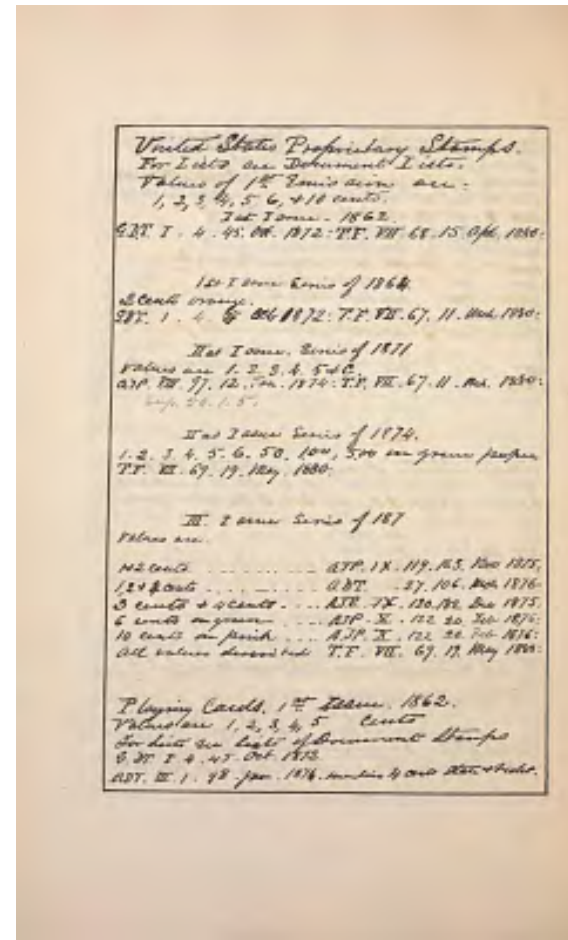 United States Proprietary Stamps.
For Lists see Document Lists.
Values of 1st Emission are:
1, 2, 3, 4, 5 6, + 10 cents.
1st Issue - 1862.
I . 4 . 45. Oct. 1872: T.F. VII 68. 15. Apl. 1880:
1st Issue Series of 1864
2 Cents orange.
1 . 4. Oct 1872: T.F. VII. 67. 11. Mch. 1880:
IInd Issue. Series of 1871
Values are 1. 2. 3. 4. 5 + 6.
AJP. VIII. 97. 12. Jan. 1874: T.F. VII. 67. 11. Mch. 1880:
IInd Issue Series of 1874.
1. 2. 3. 4. 5. 6. 50, 100, 500 on green paper
T.F. VII. 69. 19. May. 1880.
III. Issue Series of 187
Values are.
1+2 cents . . . . . . . . . AJP. IX. 119. 163. Nov 1875.
cents . . . . . . . . . ADT. . 27. 106. Mch 1876.
3 cents + 4 cents . . . AJP. IX. 130. Dec 1875.
6 cents on green . . . AJP. X. 122 20. Feb 1876:
10 cents on pinkish . . . AJP. X. 122 20 Feb 1876:
All values described T.F. VII. 69. 19. May 1880:
Playing Cards. 1st Issue. 1862.
Values are 1, 2, 3, 4, 5 cents
For lists see lists of Document Stamps
I. 4. 45 Oct 1872
ADT. III. 1. 98 Jan. 1876. mentions 4 cent